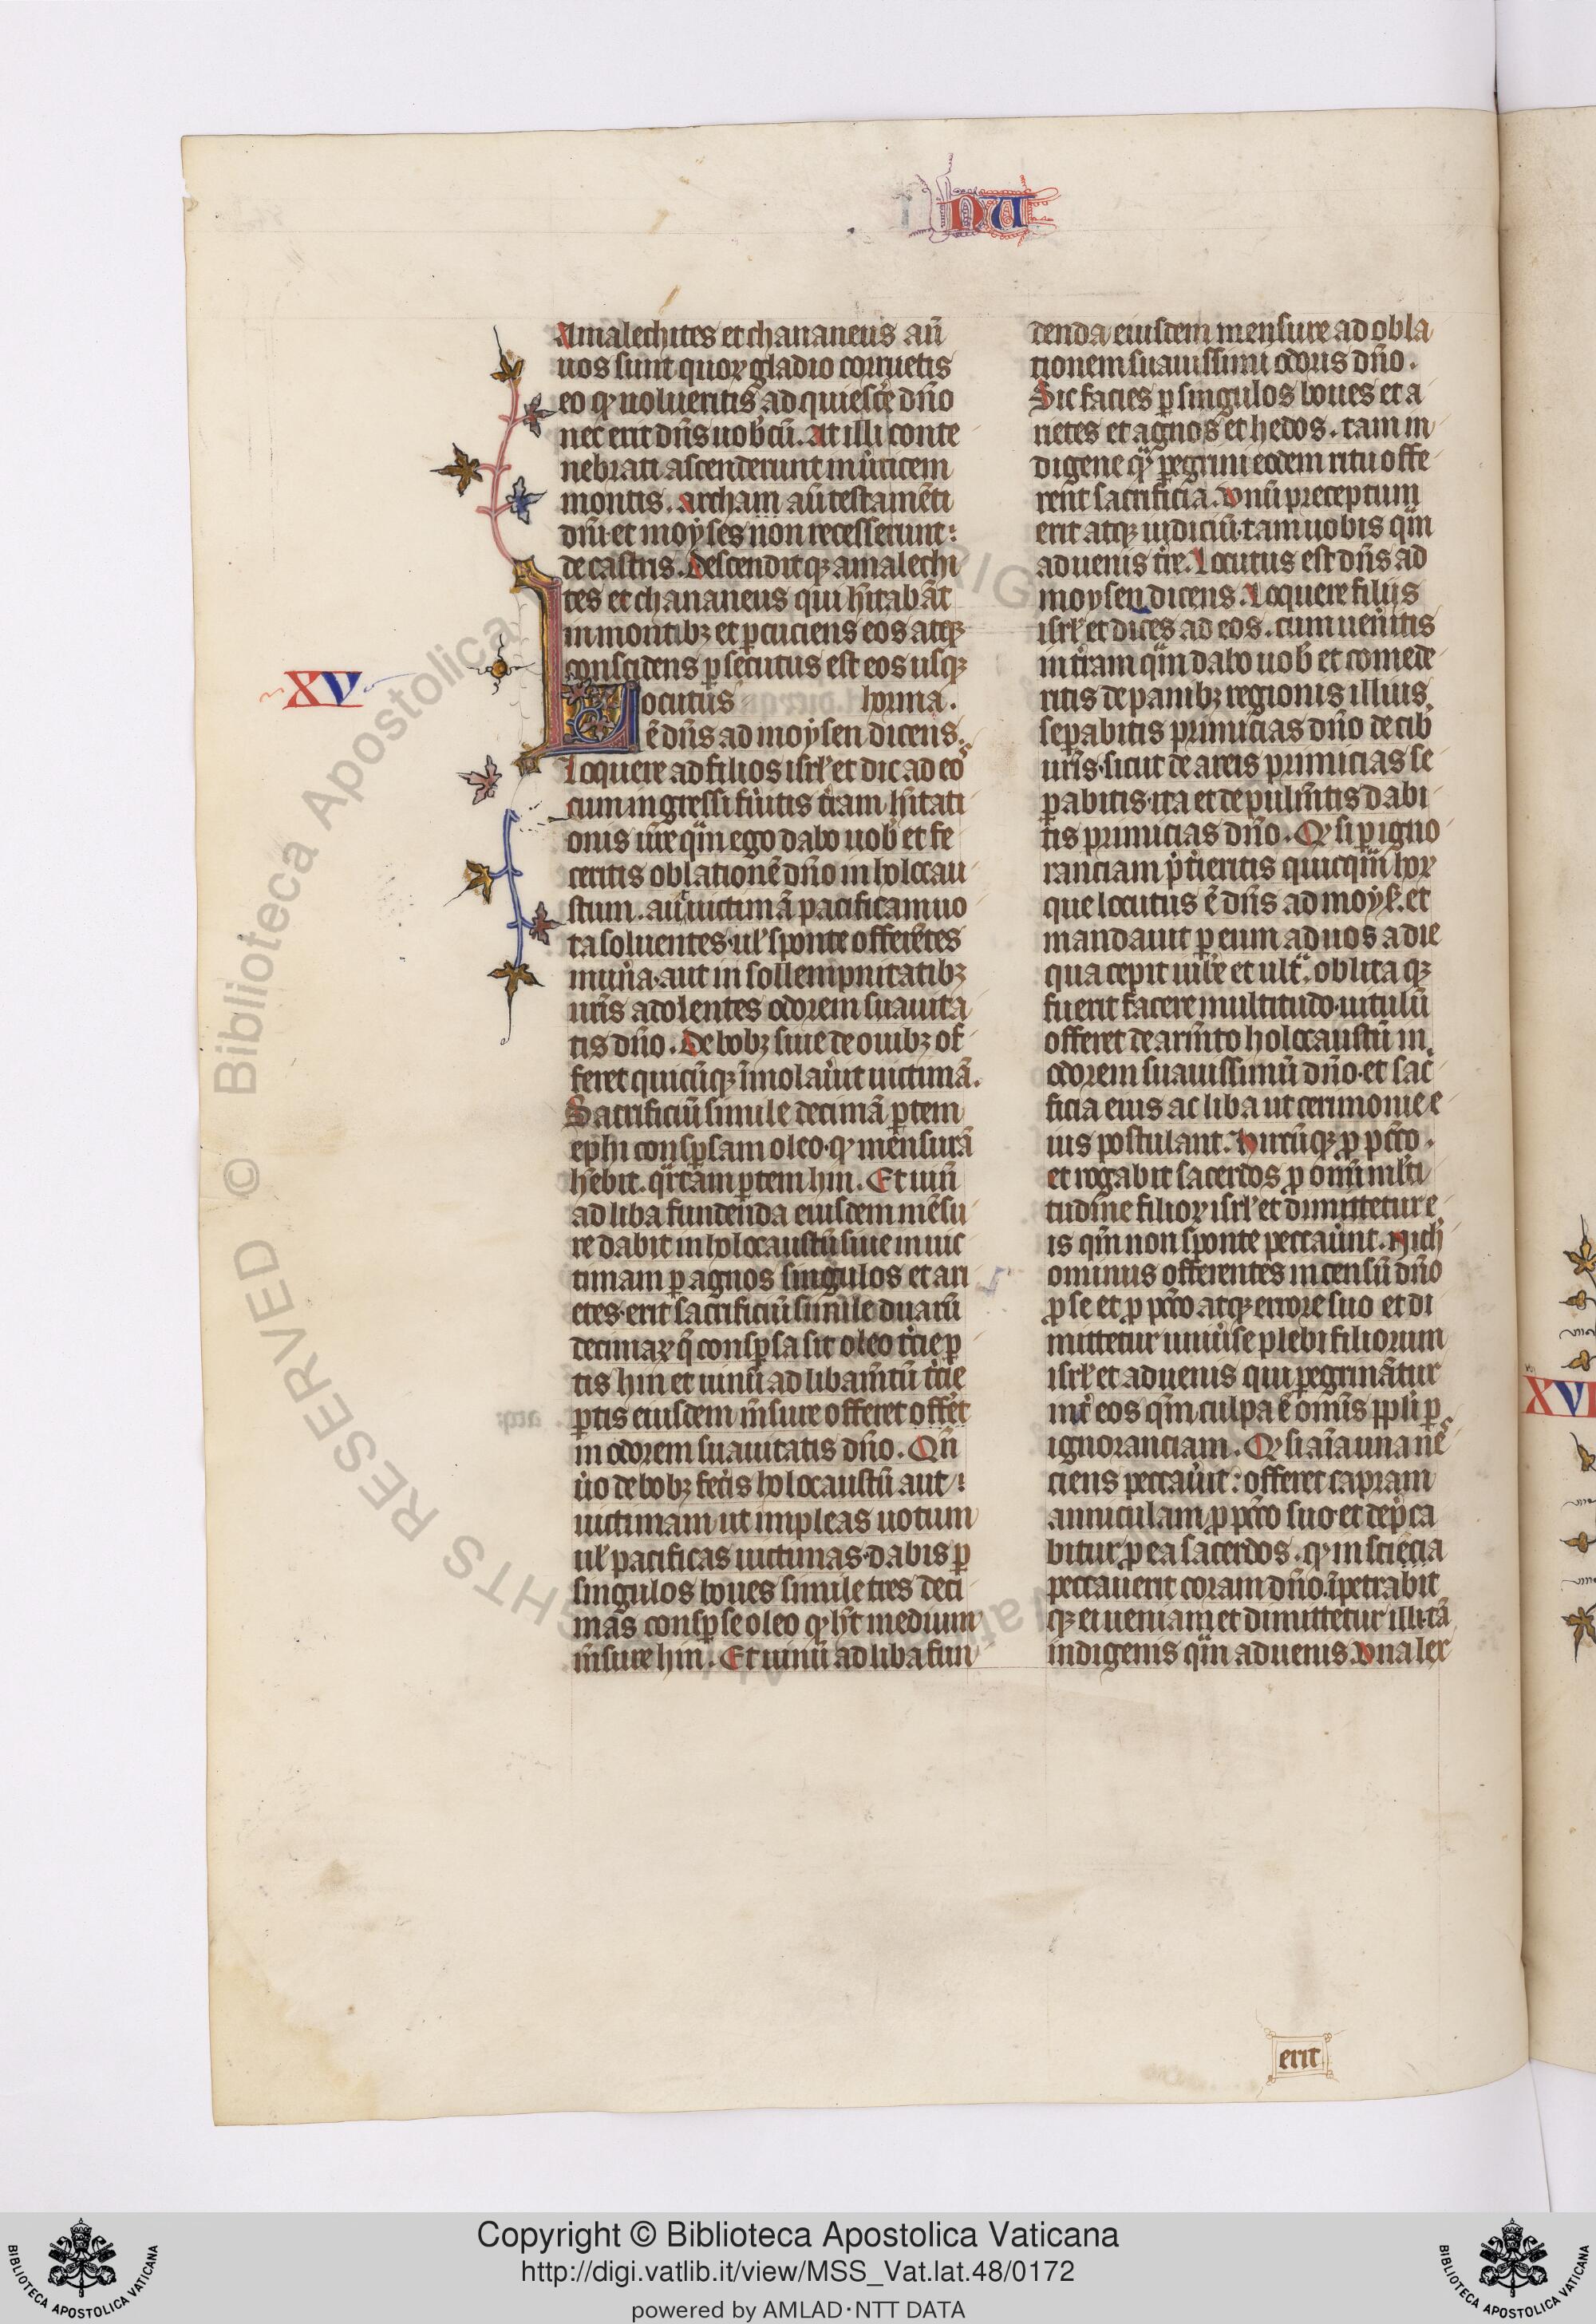 NU
Amalechites et chananeus aū
uos sunt quoꝝ gladio corruetis
eo qꝫ nolueritis adquiescē dn̄o
nec erit dn̄s uob̾cū. At illi conte
nebrati ascenderunt in u̾ticem
montis. Archam aū testamēti
dn̄i et moyses non recesserunt
de castris. Descenditqꝫ amalechi
tes et chananeus qui h̄itabāt
in montibꝫ et ꝑcuciens eos atqꝫ
conscidens ꝑsecutus est eos usqꝫ
horma.
XV
Locutus
ē dn̄s ad moysen dicens.
Loquere ad filios isrl̾ et dic ad eos
cum ingressi fu̾itis t̾ram h̄itati
onis ur̄e qm̄ ego dabo uob̾ et fe
ceritis oblationē dn̄o in holocau
stum. aut uictimā pacificam uo
ta soluentes. ul̾ sponte offerētes
mun̾a. aut in sollempnitatibꝫ
ur̄is adolentes odorem suauita
tis dn̄o. De bobꝫ siue de ouibꝫ of
feret quicūqꝫ īmolau̾it uictimā.
Sacrificiū simile decimā ꝑtem
ephi consꝑsam oleo. qꝫ mensurā
h̄ebit. qr̄tam ꝑtem hin. Et uinū
ad liba fundenda eiusdem mēsu
re dabit in holocaustū siue in uic
timam ꝑ agnos singulos et ari
etes. erit sacrificiū simile duarū
decimaꝝ q̄ consꝑsa sit oleo t̾cie ꝑ
tis hin et uinū ad libam̄tū t̾cie
ꝑtis eiusdem m̄sure offeret offeret
in odorem suauitatis dn̄o. Qn̄
u̾o de bobꝫ fec̾is holocaustū aut
uictimam ut impleas uotum
ul̾ pacificas uictimas. dabis ꝑ
singulos boues simile tres deci
mas consꝑse oleo qꝫ h̄t medium
m̄sure hin. Et uinū ad liba fun
denda eiusdem mensure ad obla
tionem suauissimi odoris dn̄o.
Sic facies ꝑ singulos boues et a
rietes et agnos et hedos. tam in
digene qꝫ ꝑegrini eodem ritu offe
rent sacrificia. Vnū preceptum
erit atqꝫ iudiciū tam uobis qm̄
aduenis t̾re. Locutus est dn̄s ad
moysen dicens. Loquere filiis
isrl̾ et dices ad eos. cum uen̾itis
in t̾ram qm̄ dabo uob̾ et comede
ritis de panibꝫ regionis illius
seꝑabitis primicias dn̄o de cib̾
ur̄is. sicut de areis primicias se
ꝑabitis. ita et de pulm̄tis dabi
tis primicias dn̄o. Qꝫ si ꝑ igno
ranciam p̾tieritis quicqm̄ hoꝝ
que locutus ē dn̄s ad moys̾. et
mandauit ꝑ eum ad uos a die
qua cepit iub̾e et ultͣ. oblitaqꝫ
fuerit facere multitudo. uitulū
offeret de arm̄to holocaustū in
odorem suauissimū dn̄o. et sac̾
ficia eius ac liba ut cerimonie e
ius postulant. hircūqꝫ ꝓ pc̄co.
et rogabit sacerdos ꝓ omī ml̾ti
tudīne filioꝝ isrl̾ et dimittetur e
is qm̄ non sponte peccau̾nt. Nich̾
ominus offerentes incensū dn̄o
ꝓ se et ꝓ pc̄co atqꝫ errore suo et di
mittetur uniu̾se plebi filiorum
isrl̾ et aduenis qui ꝑegrināntur
int̾ eos qm̄ culpa ē omīs ppl̾i ꝑ
ignoranciam. Qꝫ si aīa una nes
ciens peccau̾it: offeret capram
anniculam ꝓ pc̄co suo et dep̾ca
bitur ꝓ ea sacerdos. qꝫ in sciēcia
peccauerit coram dn̄o. īpetrabit
qꝫ ei ueniam et dimittetur illi. tā
indigenis qm̄ aduenis. Vna lex
erit
XVI
Copyright © Biblioteca Apostolica Vaticana
http://digi.vatlib.it/view/MSS_Vat.lat.48/0172
powered by AMLAD·NTT DATA
BIBLIOTECA APOSTOLICA VATICANA
BIBLIOTECA APOSTOLICA VATICANA